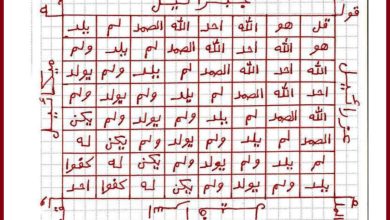 قل هو الله احد الله الصمد لم يلد
هو الله احد الله الصمد لم يلد ولم
الله احد الله الصمد لم يلد ولم يولد
احد الله الصمد لم يلد ولم يولد ولم
الله الصمد لم يلد ولم يولد ولم يكن
الصمد لم يلد ولم يولد ولم يكن له
لم يلد ولم يولد ولم يكن له كفوا
يلد ولم يولد ولم يكن له كفوا احد
عزرائيل
ميكائيل